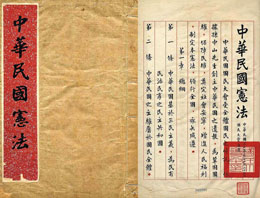 中華民國憲法
中華民國憲法
中華民國國民大會受全體國民
據孫中山先生創立中華民國之遺教，為鞏固國
權，保障民權，奠定社會安寧，增進人民福利
制定本憲法，頒行全國，永矢咸遵
第一章 總綱
第一條 中華民國基於三民主義，為民有
民治民享之民主共和國
第二條 中華民國之主權屬於國民全體